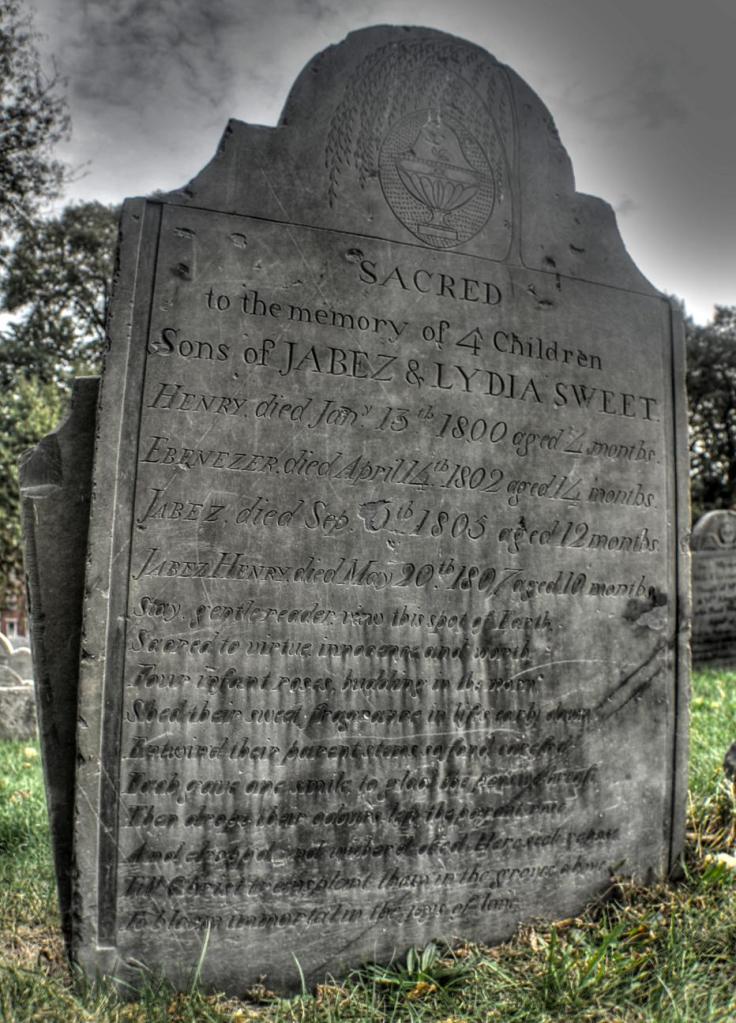 SACRED
to the memory of 4 Children
Sons of JABEZ & LYDIA SWEET.
HENRY, died Jan.y 13th 1800 aged 4 months.
EBENEZER, died April 14th 1802 aged 14 months.
JABEZ, died Sep. 1805 aged 12 months
JABEZ HENRY, died May 20th 1807 aged 10 months
Stay, gentle reader, view this spot of Earth,
Sacred to virtue, innocence and worth.
Four infant roses, budding in the morn
Shed their sweet fragrance in life's early dawn
their parent stems so fond
Each gave one smile to glad the pensive
Then their
And and Here
Till Christ transplant them in the groves above
To bloom immortal in the of love